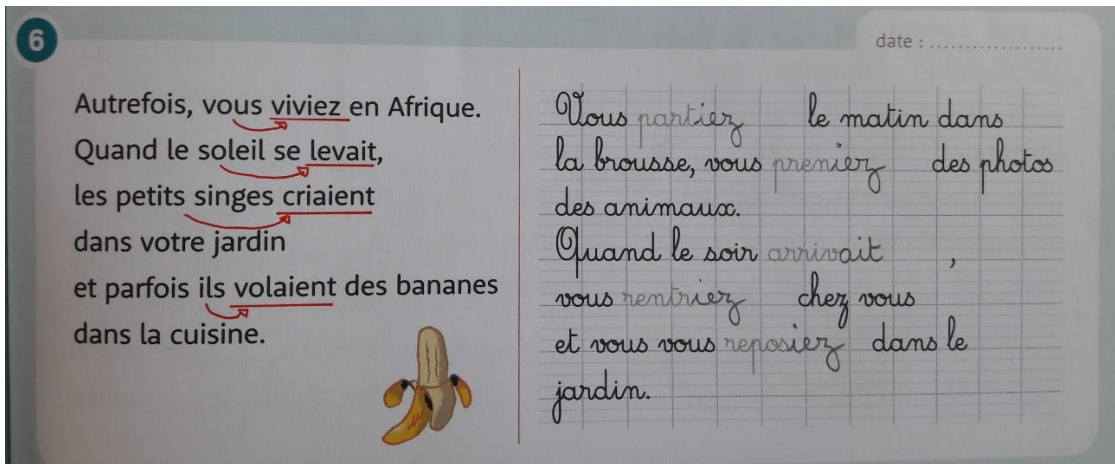 6
date : ....................
Autrefois, vous viviez en Afrique.
Quand le soleil se levait,
les petits singes criaient
dans votre jardin
et parfois ils volaient des bananes
dans la cuisine.
Vous partiez le matin dans
la brousse, vous preniez des photos
des animaux.
Quand le soir arrivait ,
vous rentriez chez vous
et vous vous reposiez dans le
jardin.